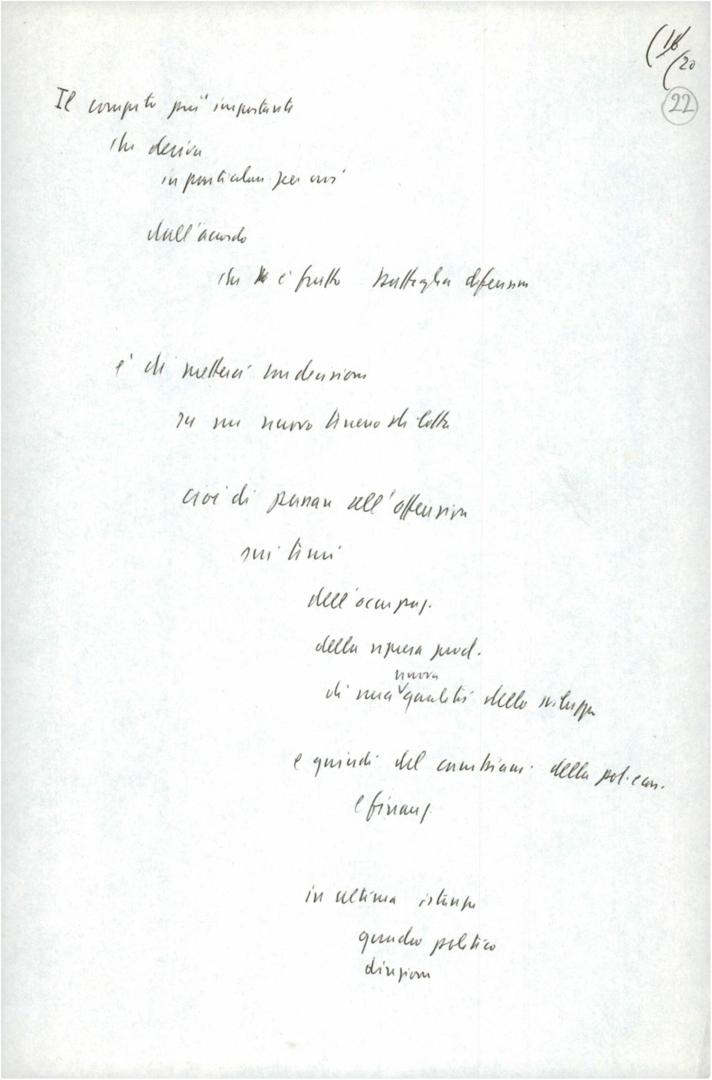 (18
(20
22
Il compito più importante
che deriva
in particolare per noi
dall'accordo
che è frutto battaglia difensiva
è di metterci con decisione
su un nuovo terreno di lotta
cioè di passare all'offensiva
sui temi
dell'occupaz.
della ripresa prod.
nuova
di una qualità dello sviluppo
e quindi del cambiam. della pol. econ.
e finanz.
in ultima istanza
quadro politico
direzione